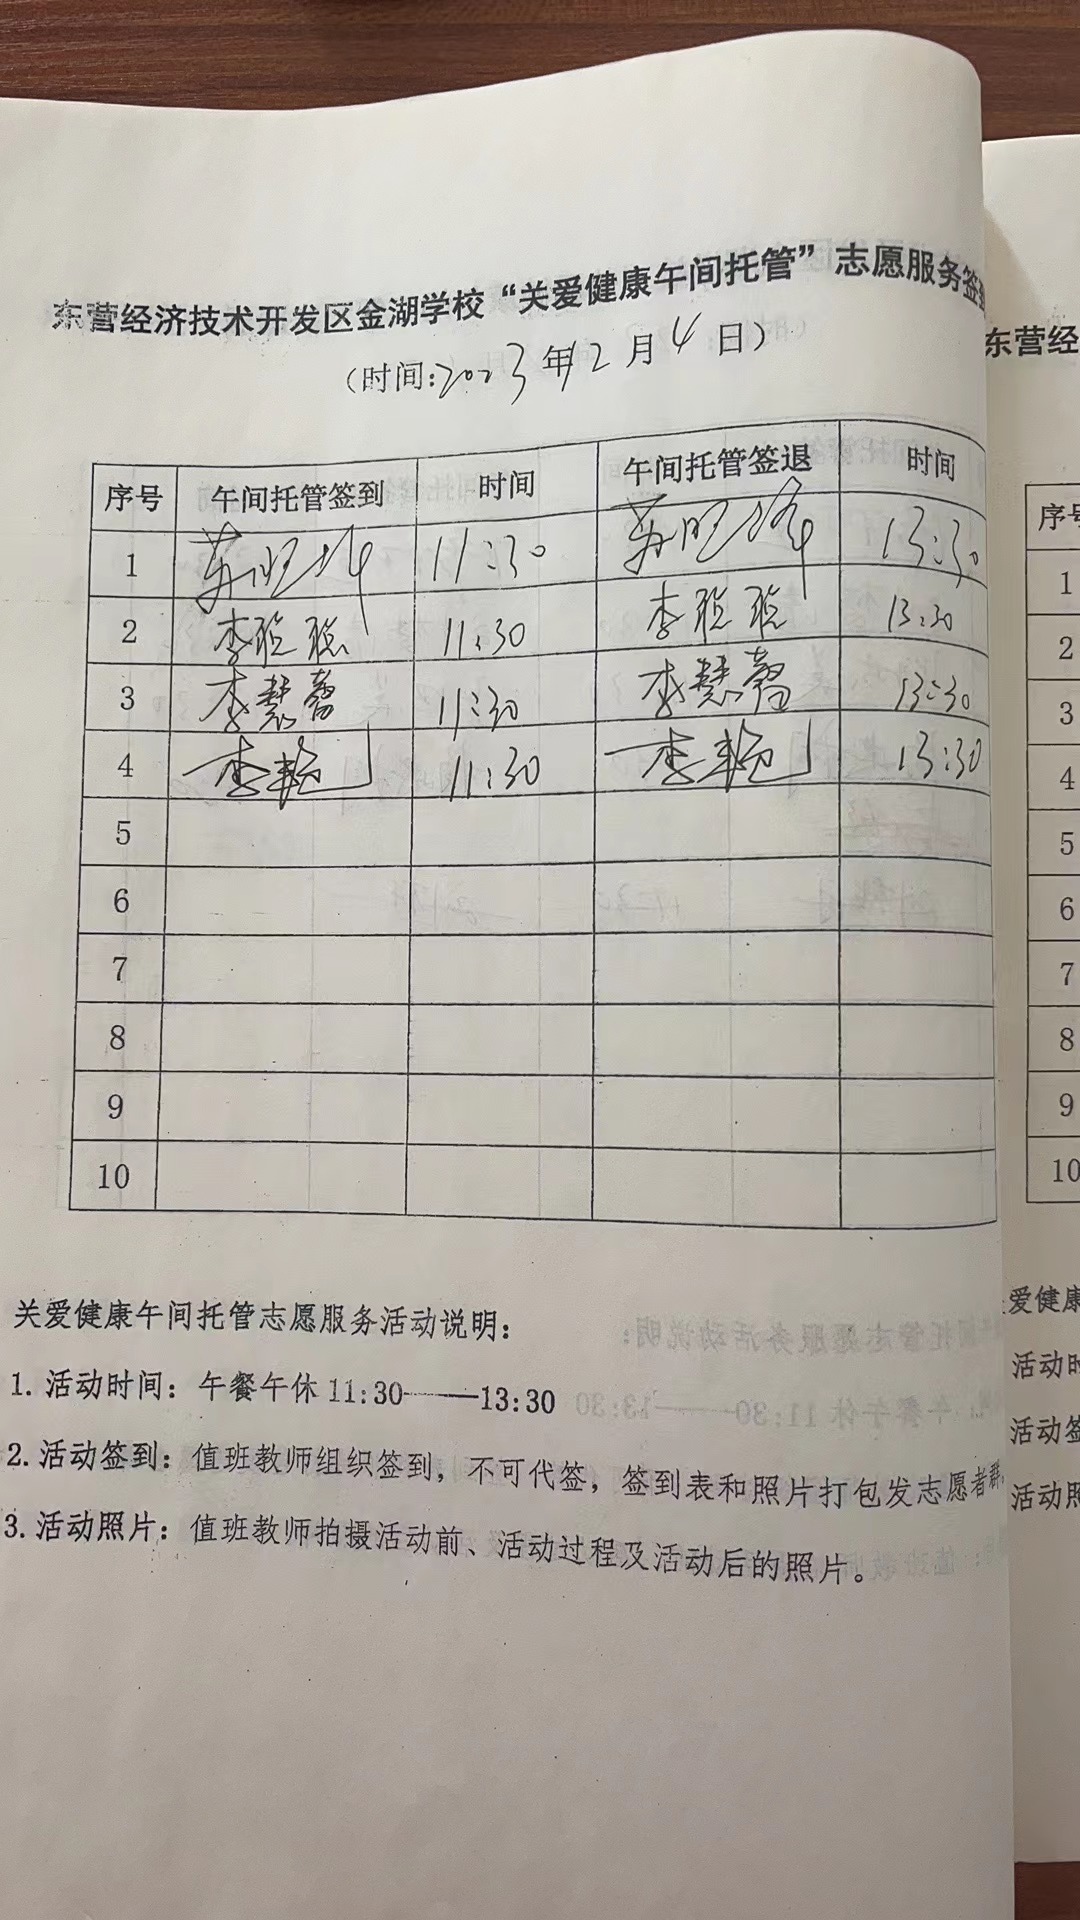 东营经济技术开发区金湖学校“关爱健康午间托管”志愿服务签到
（时间:2023年12月4日）
序号 午间托管签到 时间 午间托管签退 时间
1 11:30 13:30
2 李聪聪 11:30 李聪聪 13:30
3 李慧馨 11:30 李慧馨 13:30
4 李艳 11:30 李艳 13:30
5
6
7
8
9
10
关爱健康午间托管志愿服务活动说明：
1. 活动时间：午餐午休 11:30——13:30
2. 活动签到：值班教师组织签到，不可代签，签到表和照片打包发志愿者群。
3. 活动照片：值班教师拍摄活动前、活动过程及活动后的照片。
东营经
序号
1
2
3
4
5
6
7
8
9
10
爱健康
活动时
活动签
活动照